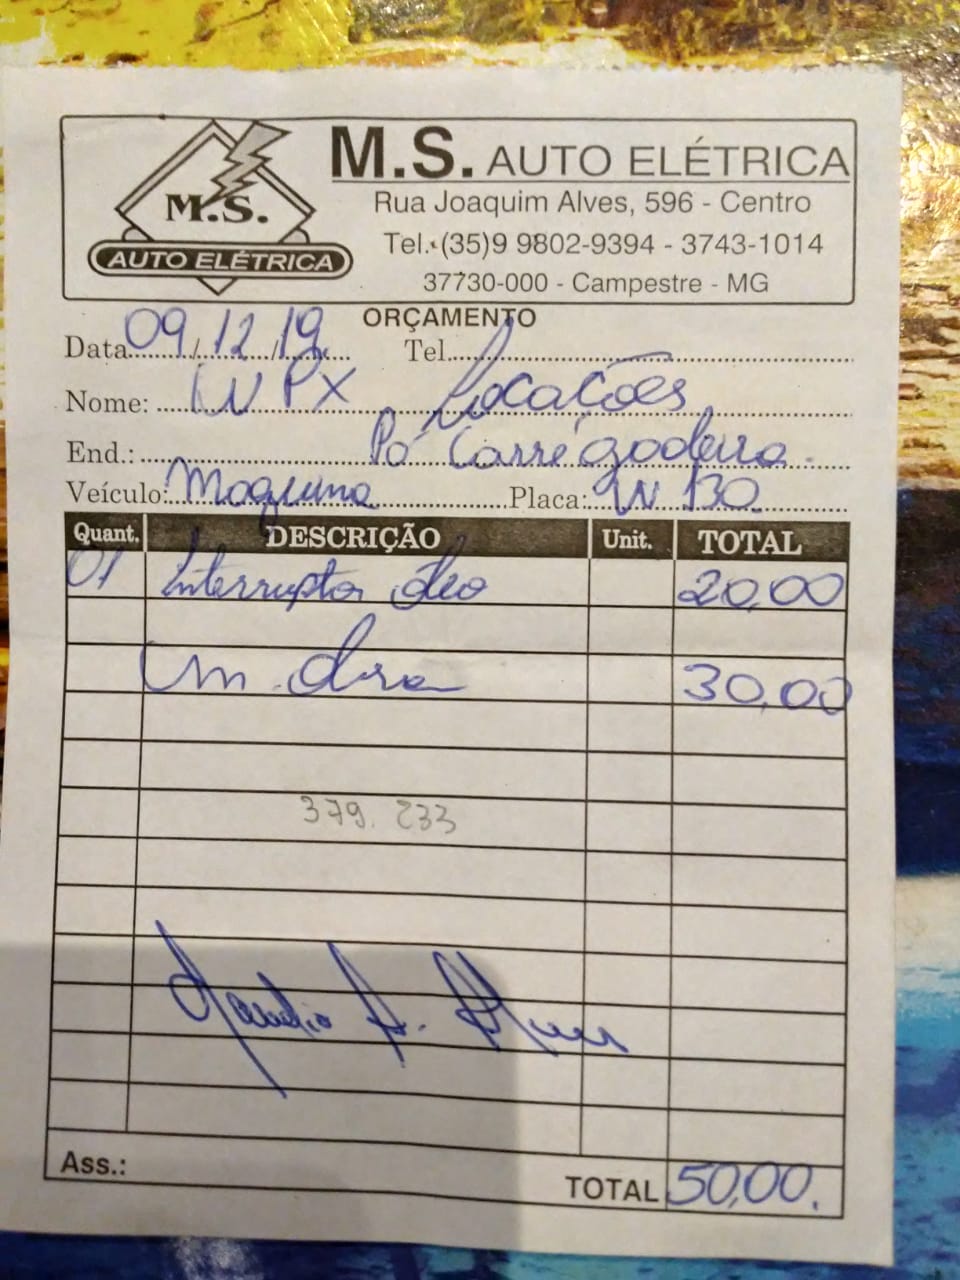 M.S. AUTO ELÉTRICA
M.S.
AUTO ELÉTRICA
Rua Joaquim Alves, 596 - Centro
Tel.: (35)9 9802-9394 - 3743-1014
37730-000 - Campestre - MG
ORÇAMENTO
Data 09/12/19 Tel.
Nome: WPX Locações
End.: Pá Carregadeira
Veículo: Maquina Placa: W 130
Quant. DESCRIÇÃO Unit. TOTAL
01 Interruptor óleo 20,00
m. obra 30,00
379.233
Ass.:
TOTAL 50,00.